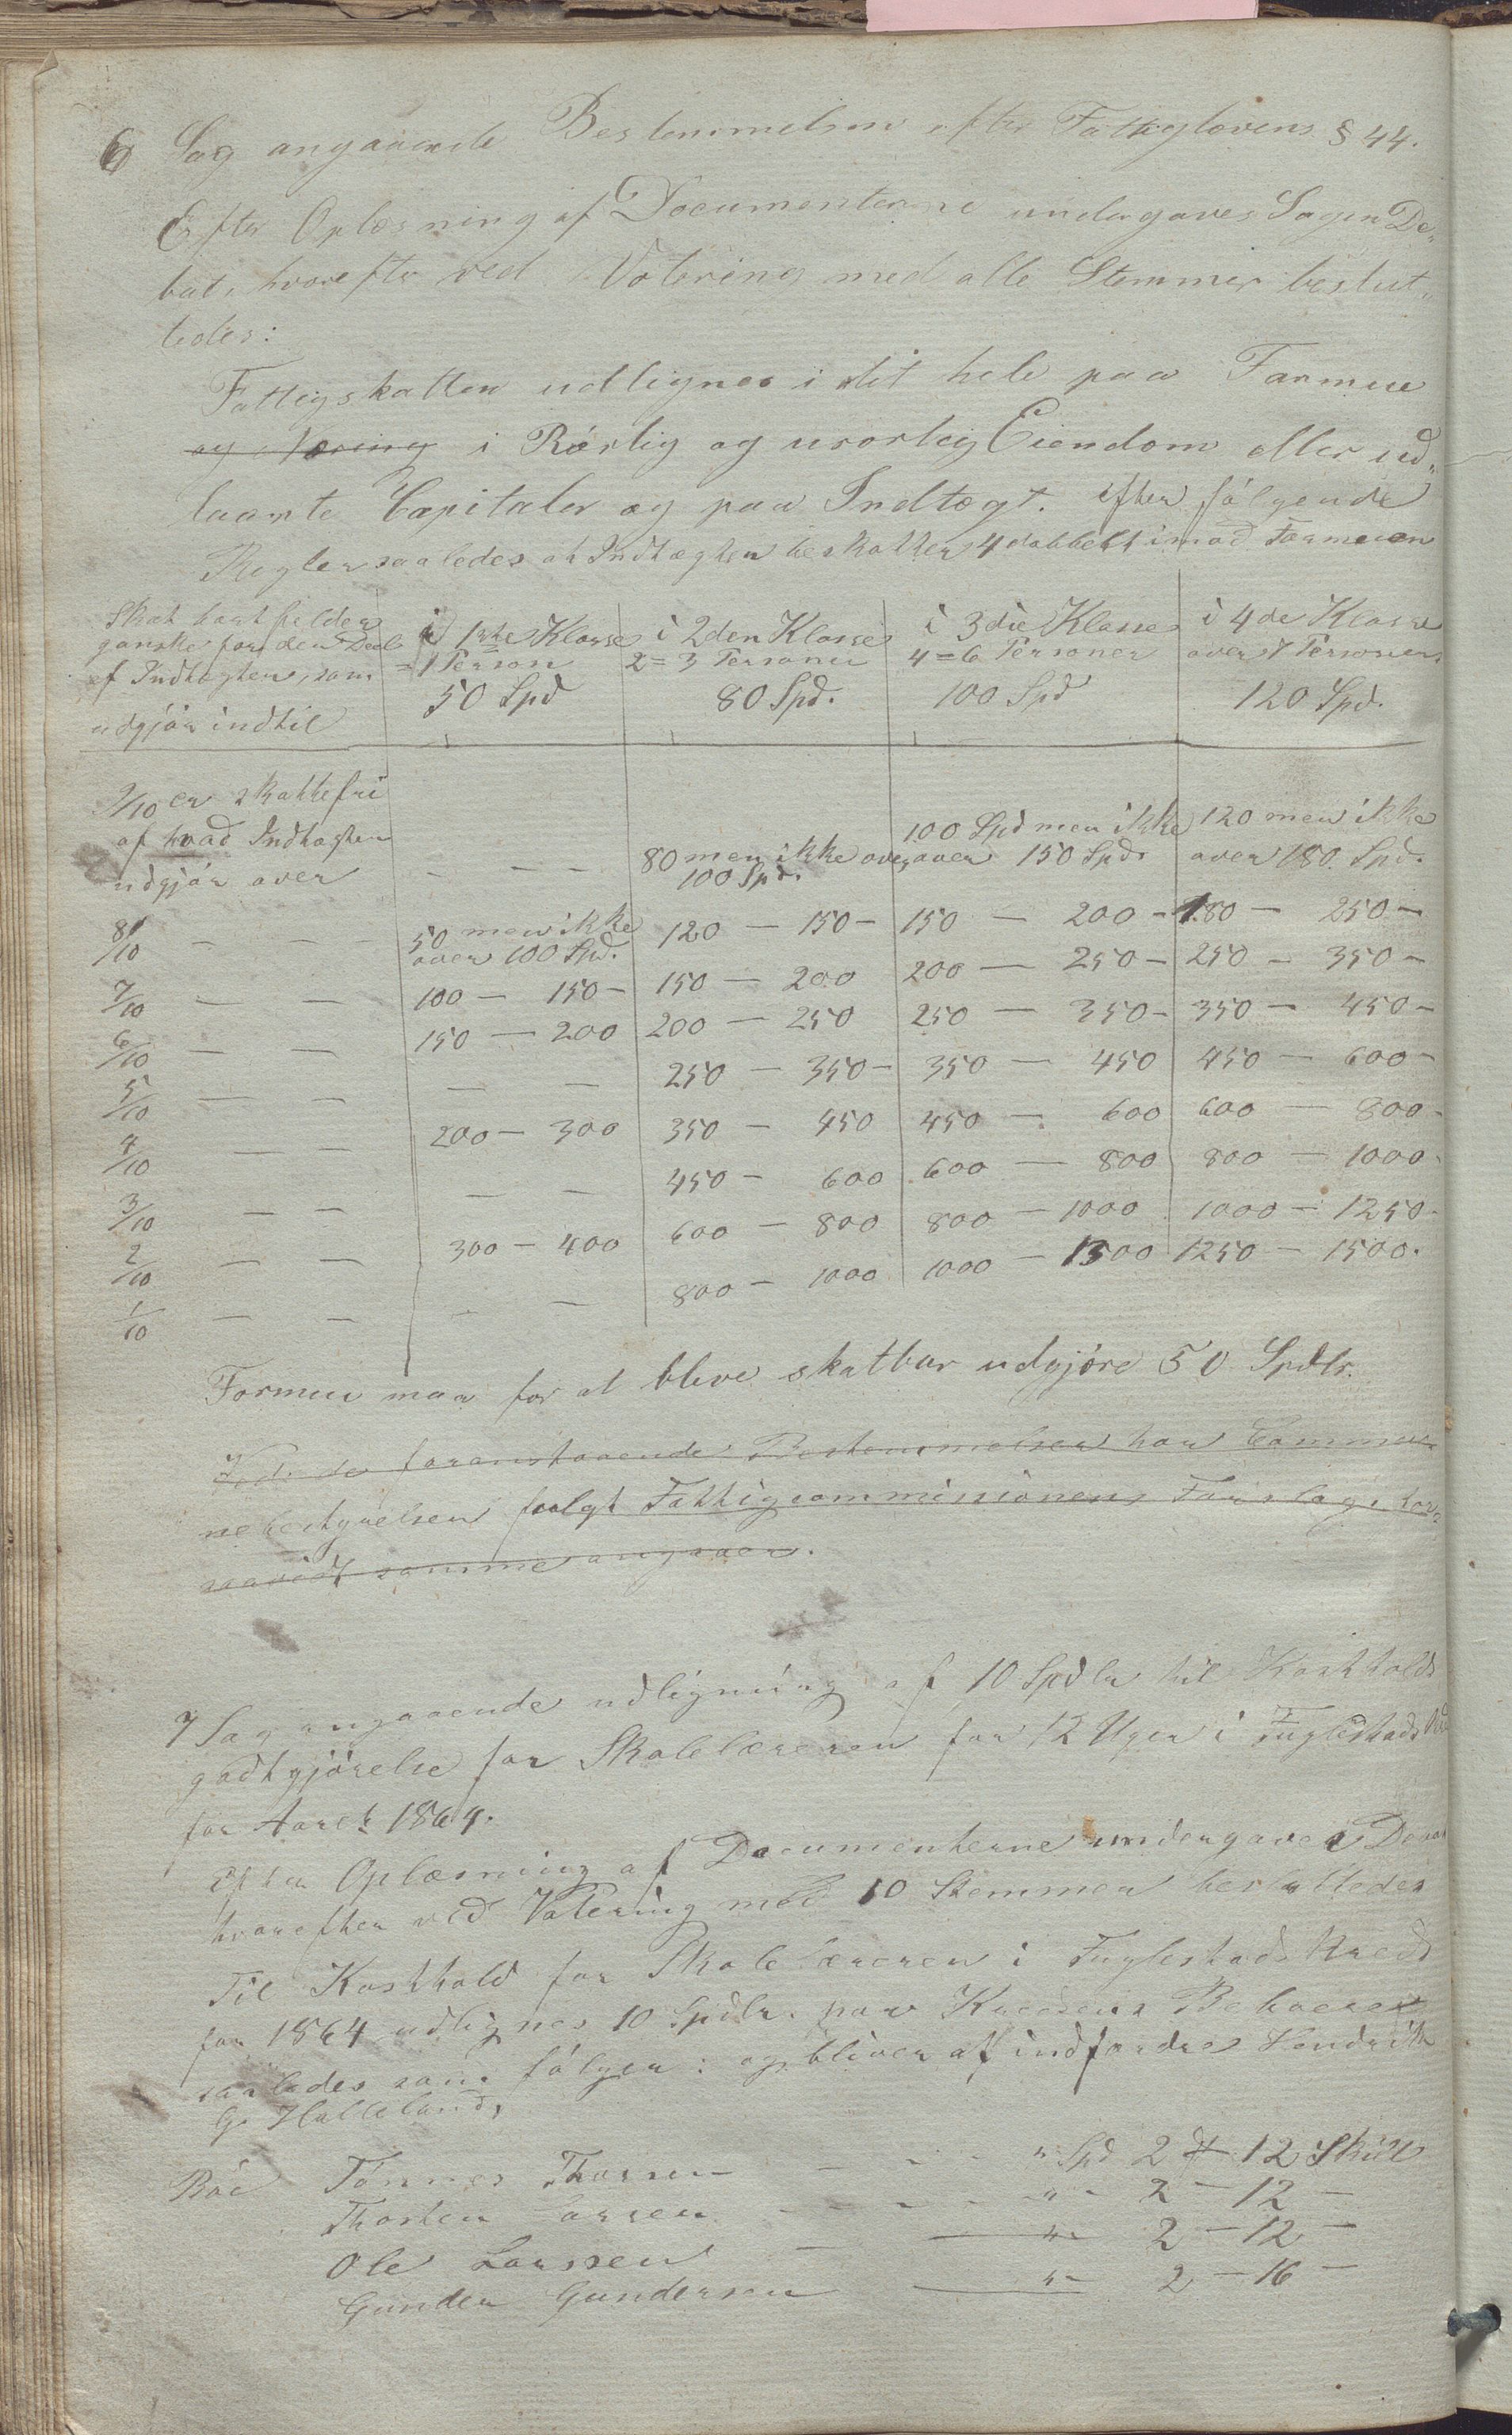 6 Sag angaaende Bestemmelsen efter Fattiglovens § 44.
Efter Oplæsning af Documenterne undergaves Sagen De„
bat, hvorefter ved Votering med alle Stemmer beslut„
tedes:
Fattigskatten udlignes i det hele paa Formue
og Næring i Rørlig og urørlig Eiendom eller ud„
laante Capitaler og paa Indtægt. efter følgende
Regler saaledes at Indtægten beskattes 4 dobbelt imod Formuen
Skat bortfalder i 1ste Klasse i 2den Klasse i 3die Klasse i 4de Klasse
ganske for den Deel = 1 Person 2=3 Personer 4=6 Personer over 7 Personer
af Indtægten, som 50 Spd 80 Spd. 100 Spd 120 Spd.
udgjør indtil
9/10 er skattefri
af hvad Indtægten 100 Spd men ikke 120 men ikke
udgjør over — — — 80 men ikke over over 150 Spd. over 180 Spd.
100 Spd.
8/10 — — — 50 men ikke 120 — 150 — 150 — 200 — 180 — 250 —
over 100 Spd.
7/10 — — 100 — 150 — 150 — 200 200 — 250 — 250 — 350 —
6/10 — — 150 — 200 200 — 250 250 — 350 — 350 — 450 —
5/10 — — — — 250 — 350 — 350 — 450 450 — 600 —
4/10 — — 200 — 300 350 — 450 450 — 600 600 — 800 —
3/10 — — — — 450 — 600 600 — 800 800 — 1000
2/10 — — 300 — 400 600 — 800 800 — 1000 1000 — 1250
1/10 — — — — 800 — 1000 1000 — 1500 1250 — 1500.
Formuen maa for at bleve skatbar udgjøre 50 Spdlr.
Ved de foranstaaende Bestemmelser har Commu
nebestyrelsen fulgt Fattigcommissionens Forslag, for„
saavidt samme angaaer.
7 Sag angaaende udligning af 10 Spdlr til Kostholds
godtgjørelse for Skolelæreren for 12 Uger i Fuglestads Kreds
for Aaret 1864.
Efter Oplæsning af Documenterne undergaves Debat
hvorefter ved Votering med 10 Stemmer besluttedes
Til Kosthold for Skolelæreren i Fuglestads Kreds
for 1864 udlignes 10 Spdlr. paa Kredsens Beboere
saaledes som følger: og bliver at indfordre Hendrik
G. Halleland,
Böe Tönnes Thorsen — — — „ Spd 2 # 12 Skill
Thorsten Larsen — — — „ — 2 — 12 —
Ole Larssen — — „ — 2 — 12 —
Gunder Gundersen — „ — 2 — 16 —